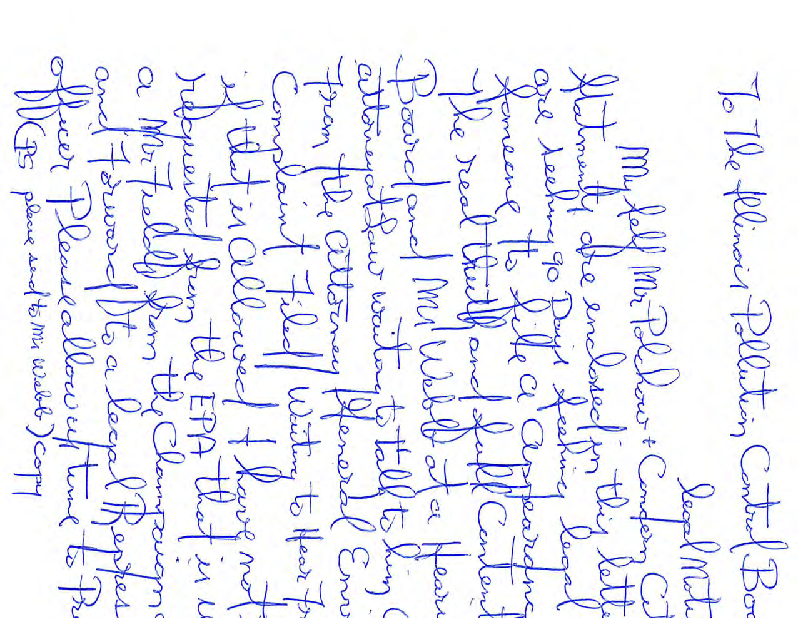 To The Illinois Pollution Control Boa
legal Moti
My self Mr Polchow + Company Cit
Statments are enclosed in this lette
are seeking 90 Days seeking legal
someone to file a Appearanc
The real truth and full Content
Board and Mr Webb at a Heari
attorney at law waiting to talk to him
From the attorney General Env
Complaint Filed Waiting to Hear Fr
if that is allowed I have not
requested from the EPA that is
a Mr Fields from the Champaign
and Forward to a legal Repres
officer Please allow up time to Pr
(PS please send to Mr Webb) copy